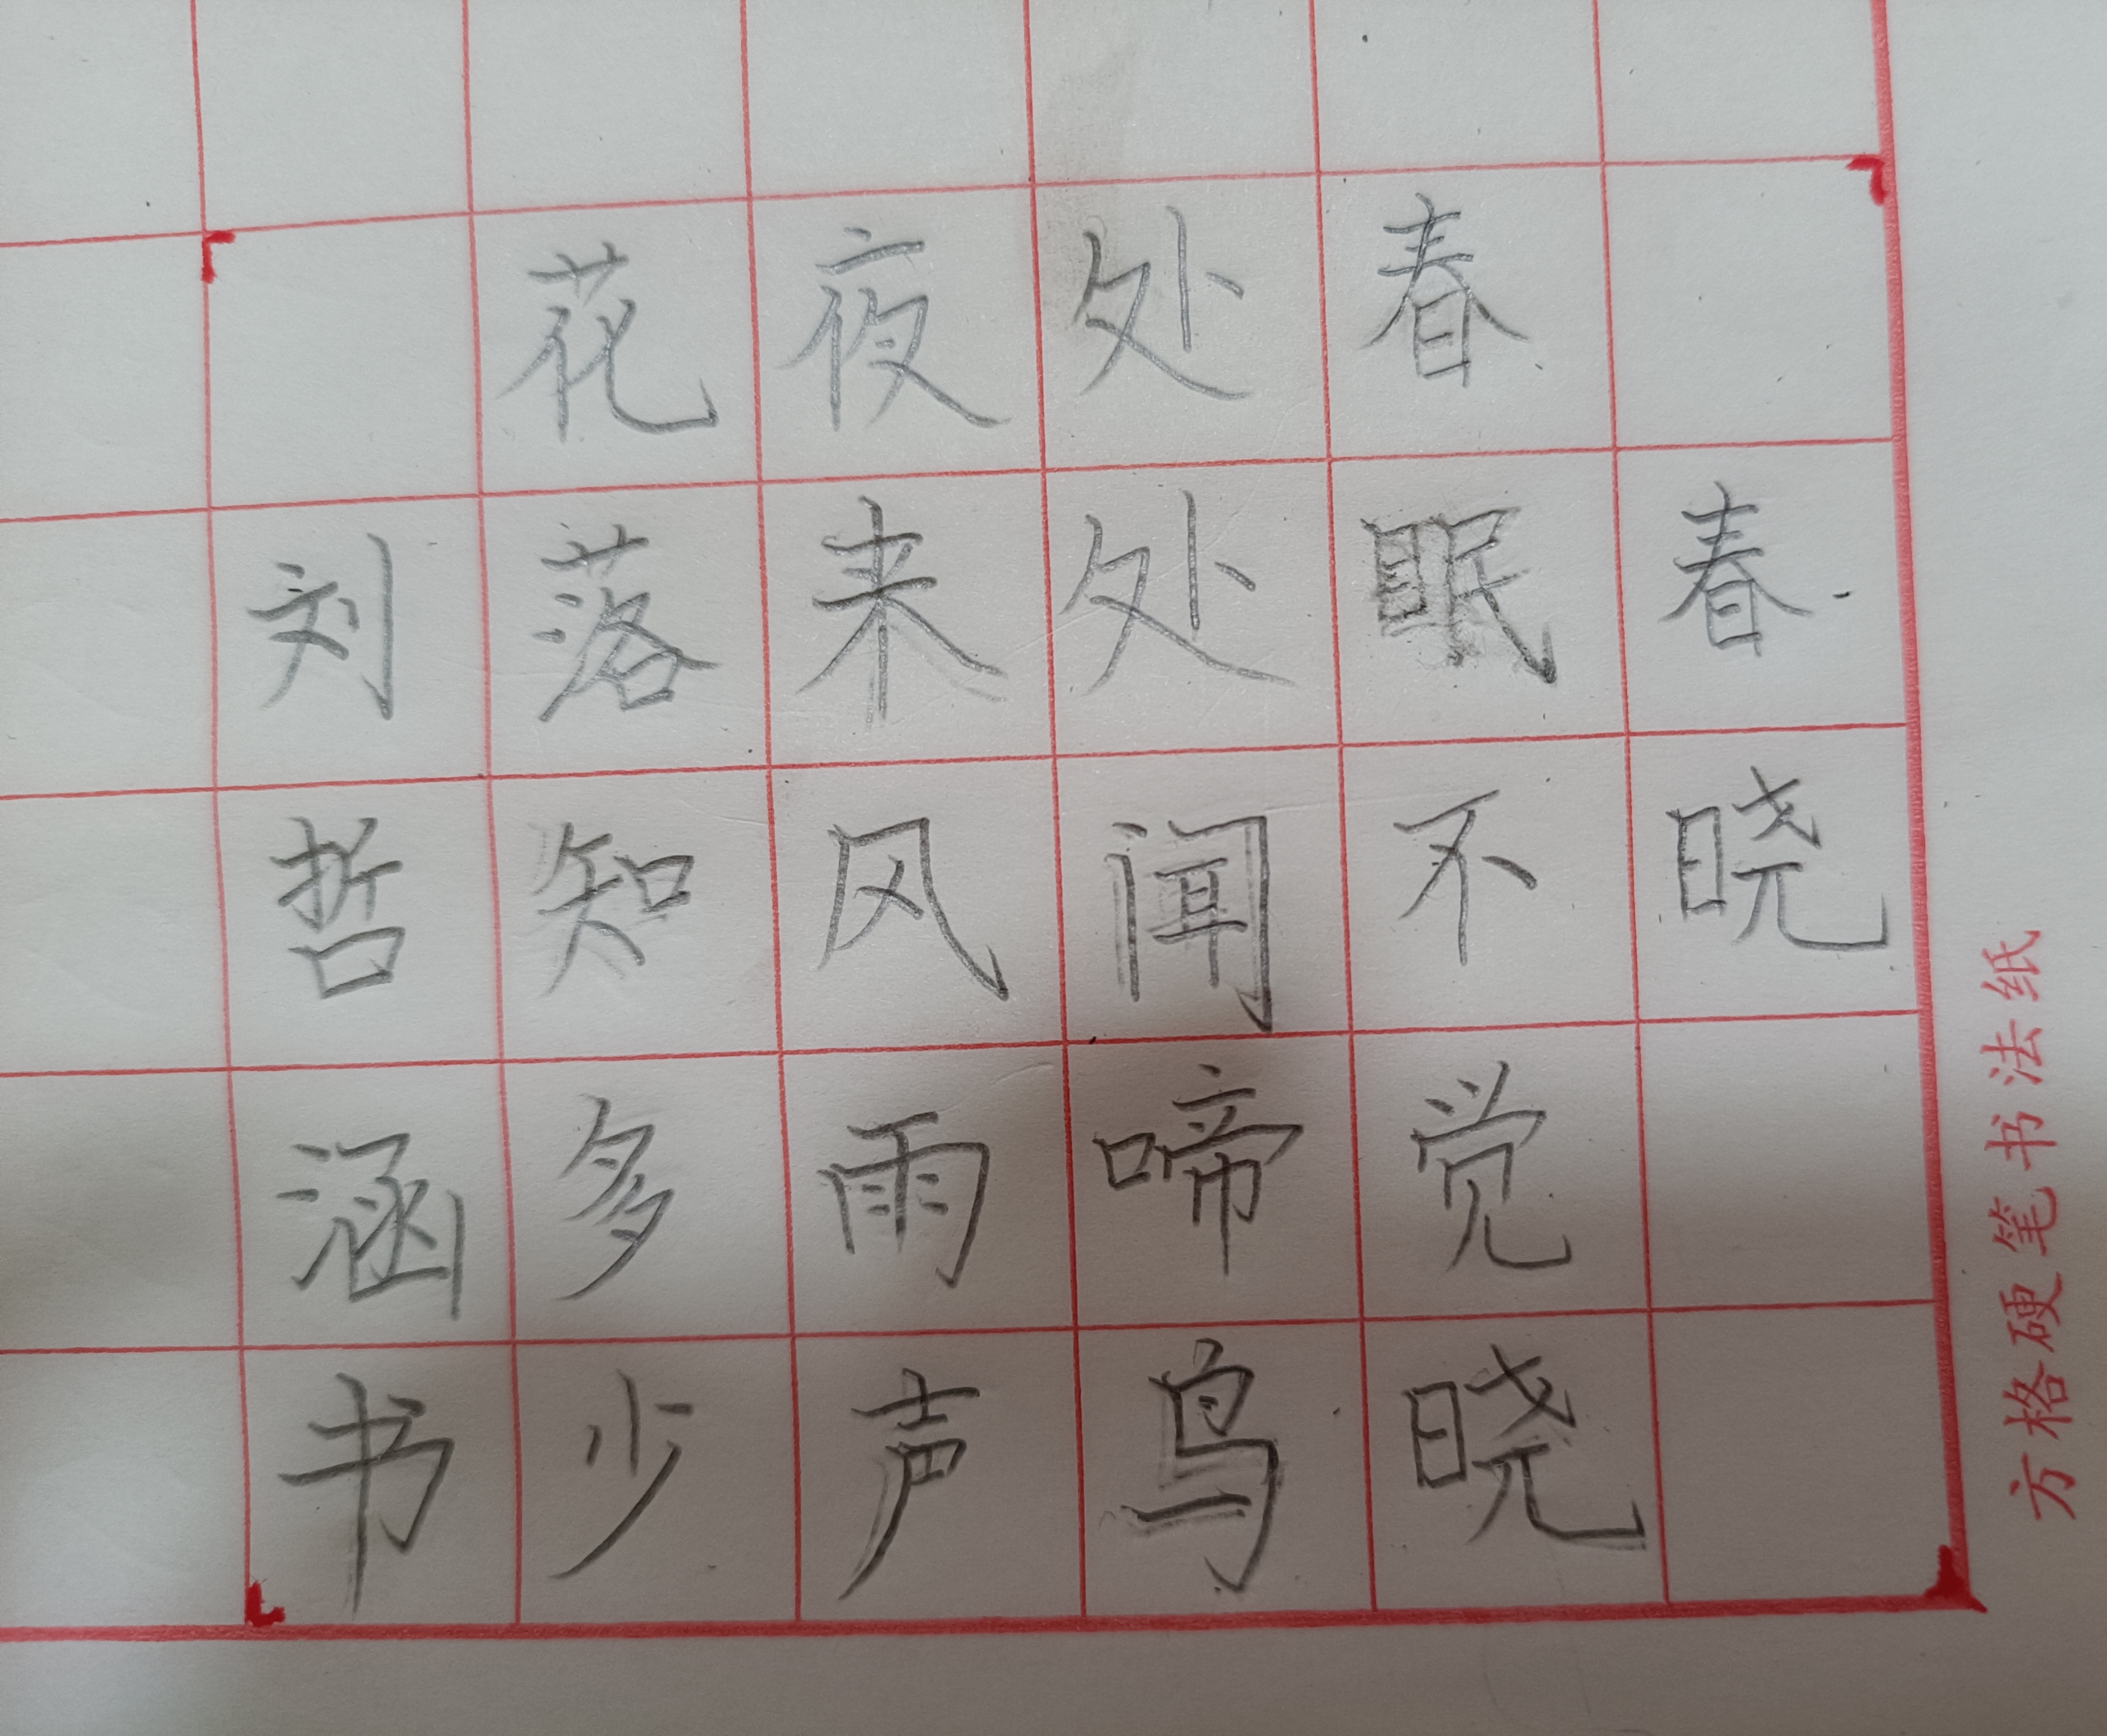 春晓
春眠不觉晓
处处闻啼鸟
夜来风雨声
花落知多少
刘哲涵书
方格硬笔书法纸